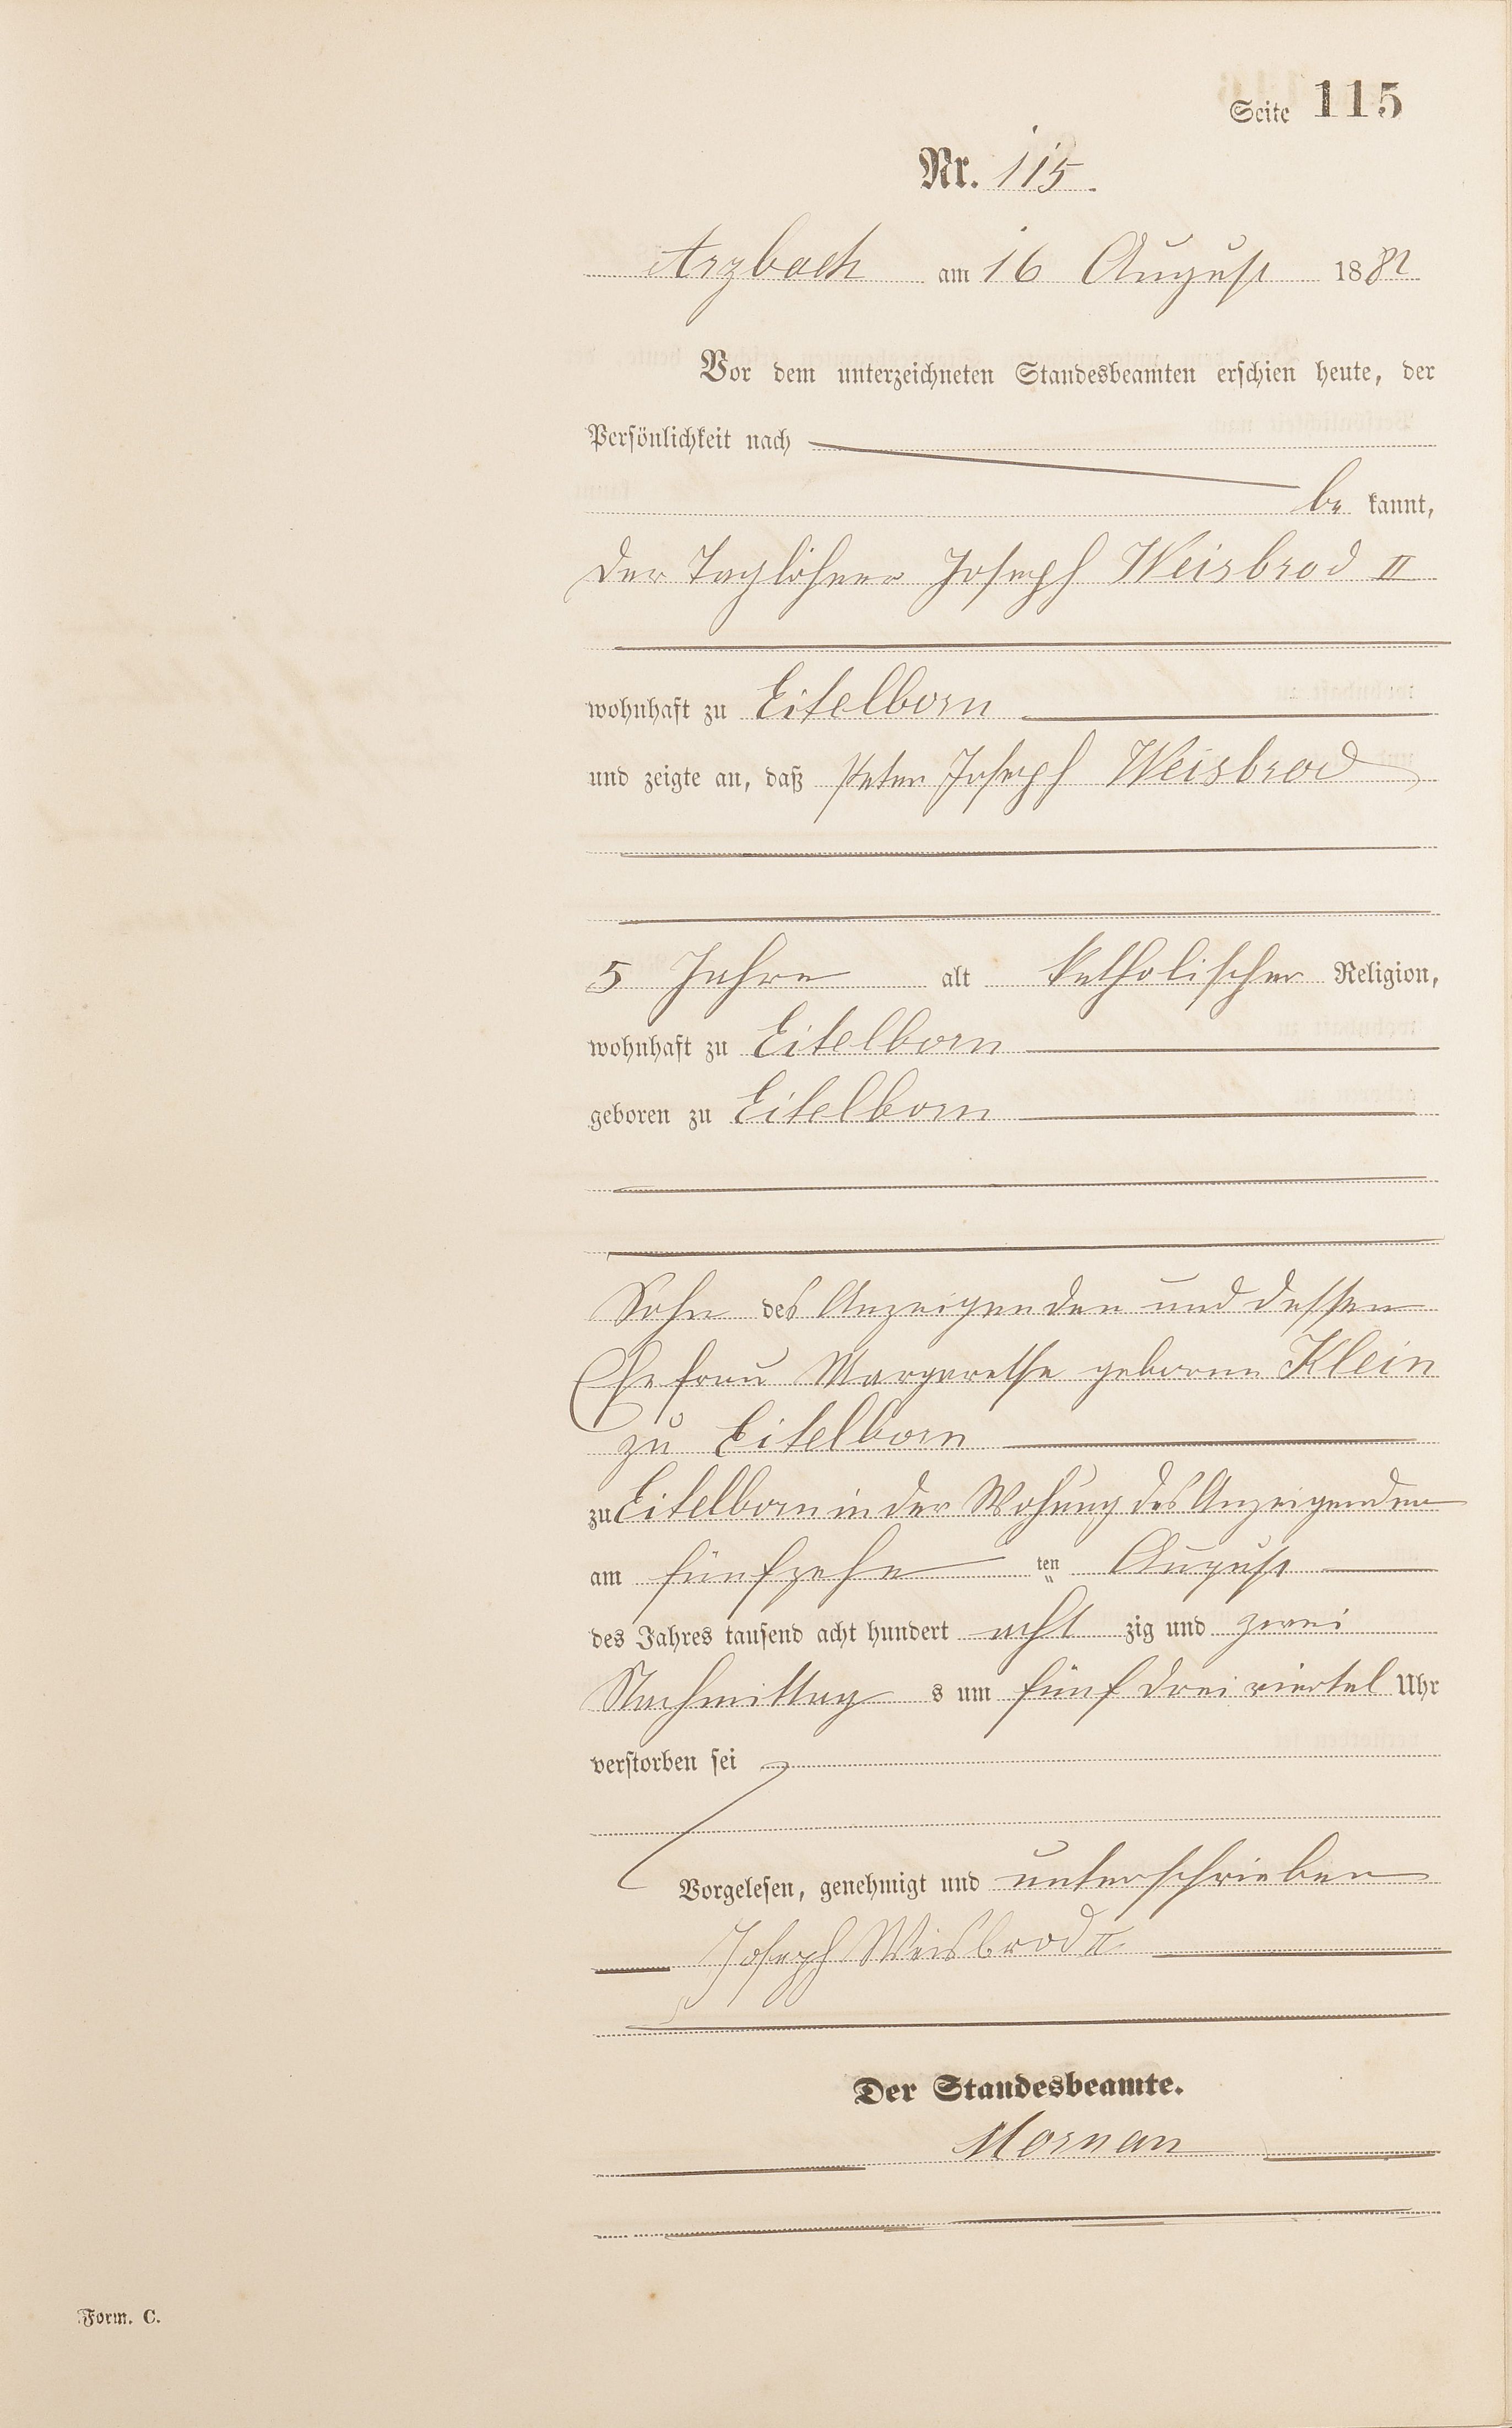 Seite 115
Nr. 115.
Arzbach am 16 August 1882
Vor dem unterzeichneten Standesbeamten erschien heute, der
Persönlichkeit nach
be kannt,
der Taglöhner Joseph Weisbrod II
wohnhaft zu Eitelborn
und zeigte an, daß Peter Joseph Weisbrod
5 Jahre alt katholischer Religion,
wohnhaft zu Eitelborn
geboren zu Eitelborn
Sohn des Anzeigenden und dessen
Ehefrau Margarethe geborne Klein
zu Eitelborn
zu Eitelborn in der Wohung des Anzeigenden
am fünfzehn ten August
des Jahres tausend acht hundert acht zig und zwei
Nachmittag s um fünf dreiviertel Uhr
verstorben sei
Vorgelesen, genehmigt und unterschrieben
Joseph Weisbrod II
Der Standesbeamte.
Mornan
Form. C.